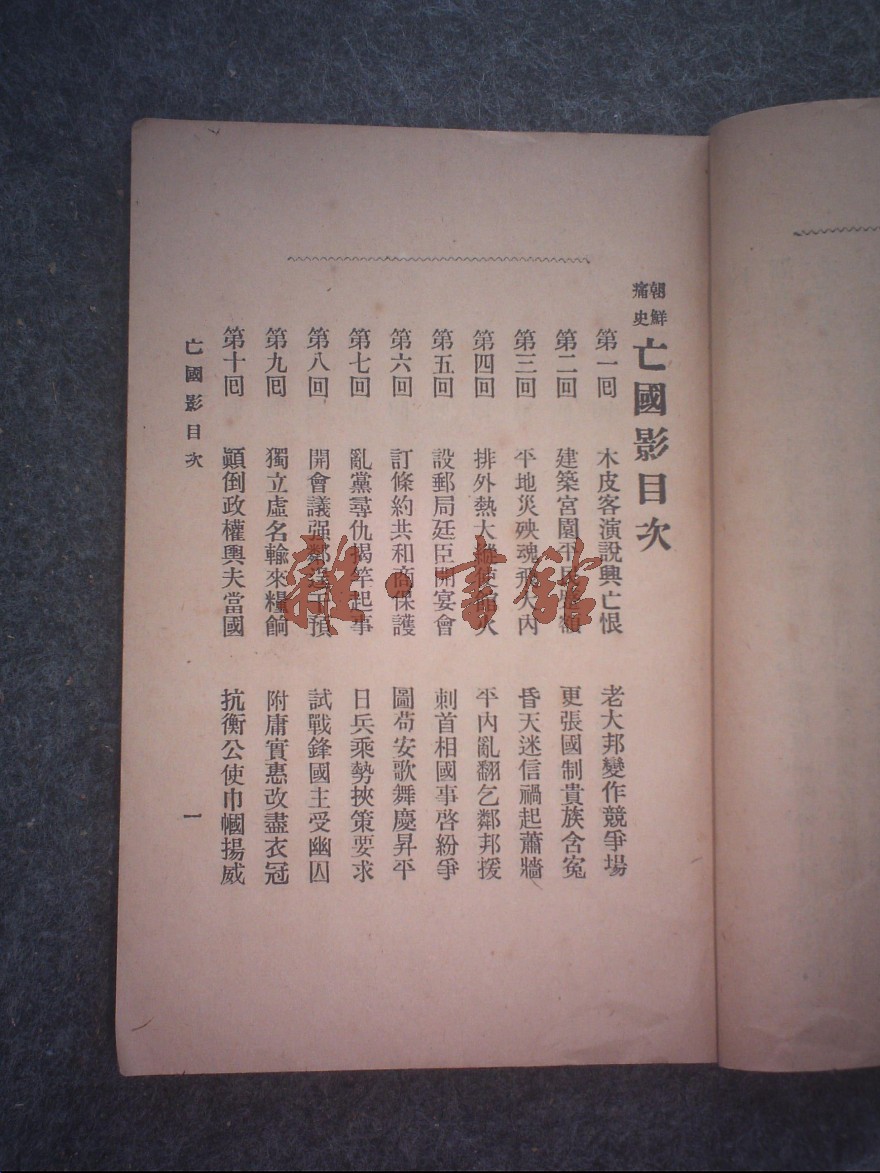 朝鮮痛史 亡國影目次
第一囘 木皮客演說興亡恨 老大邦變作競爭場
第二回 建築宮園平民 更張國制貴族含冤
第三回 平地災殃魂飛大內 昏天迷信禍起蕭牆
第四回 排外熱大 使館火 平內亂翻乞鄰邦援
第五回 設郵局廷臣開宴會 刺首相國事啓紛爭
第六回 訂條約共和商保護 圖苟安歌舞慶昇平
第七回 亂黨尋仇揭竿起事 日兵乘勢挾策要求
第八回 開會議强鄰 干預 試戰鋒國主受幽囚
第九囘 獨立虛名輸來糧餉 附庸實惠改盡衣冠
第十囘 顚倒政權輿夫當國 抗衡公使巾幗揚威
亡國影目次
一
雜·書館